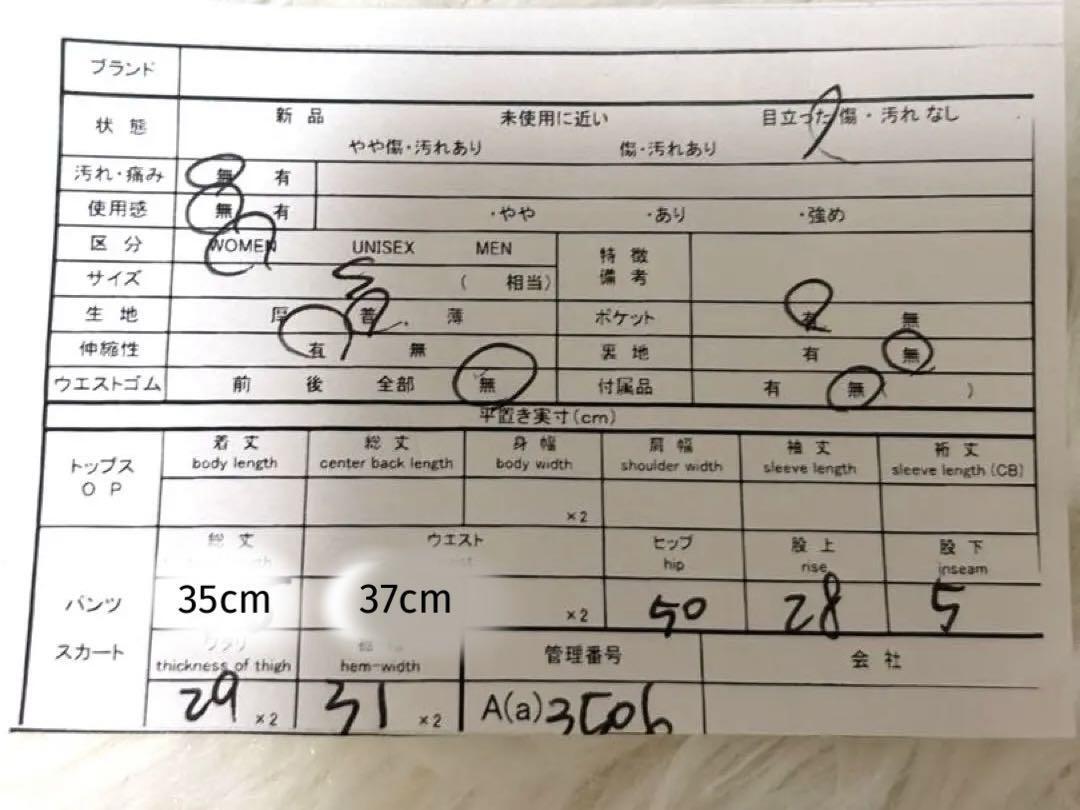 ブランド
状態 新品 未使用に近い 目立った傷・汚れなし
やや傷・汚れあり 傷・汚れあり
汚れ・痛み 無 有
使用感 無 有 ・やや ・あり ・強め
区分 WOMEN UNISEX MEN 特徴
備考
サイズ S ( 相当)
生地 厚 普 薄 ポケット 有 無
伸縮性 有 無 裏地 有 無
ウエストゴム 前 後 全部 無 付属品 有 無 ( )
平置き実寸(cm)
トップス 着丈 総丈 身幅 肩幅 袖丈 裄丈
OP body length center back length body width shoulder width sleeve length sleeve length (CB)
×2
総丈 ウエスト ヒップ 股上 股下
hip rise inseam
パンツ 35cm 37cm ×2 50 28 5
スカート ワタリ 管理番号 会社
thickness of thigh hem-width
29 ×2 31 ×2 A(a)